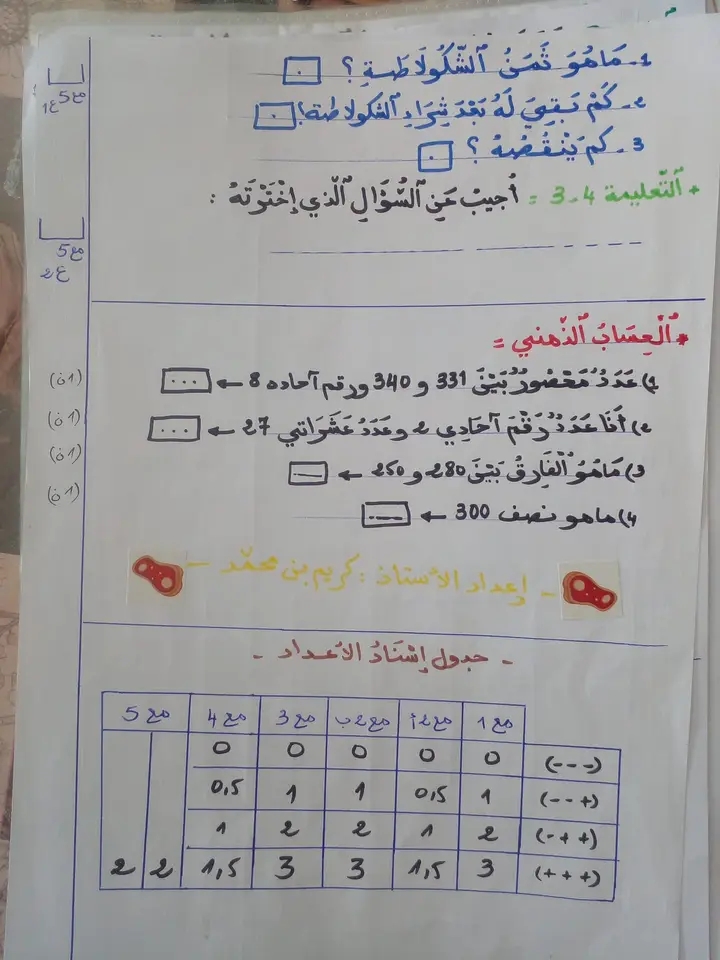 1- مَا هُوَ ثَمَنُ ٱلشُّكُولَاطَةِ ؟
2- كَمْ بَقِيَ لَهُ بَعْدَ شِرَاءِ الشكولاطة؟
3- كم يَنْقُصُهُ ؟
مع5
ع1
+ ٱلتَّعليمة 4-3 = أُجِيبُ عَنِ ٱلسُّؤَالِ ٱلَّذِي إِخْتَرْتَهُ :
مع5
ع2
* ٱلْحِسَابُ ٱلذِّهني =
1) عَدَدٌ مَحْصُورٌ بَيْنَ 331 و 340 ورقم آحاده 8 ← ... (1ن)
2) أَنَا عَدَدٌ رَقْمُ آحَادِي 2 وعَدَدُ عَشَرَاتي 27 ← ... (1ن)
3) مَا هُوَ ٱلْفَارِقُ بَيْنَ 280 و 250 ← .... (1ن)
4) ماهو نصف 300 ← .... (1ن)
- إعداد الأستاذ : كريم بن محمّد -
- جدول إسْنَادُ الأعداد -
مع 1 مع2أ مع2ب مع 3 مع 4 مع 5
(---) 0 0 0 0 0
(--+) 1 0,5 1 1 0,5
(-++) 2 1 2 2 1
(+++) 3 1,5 3 3 1,5 2 2